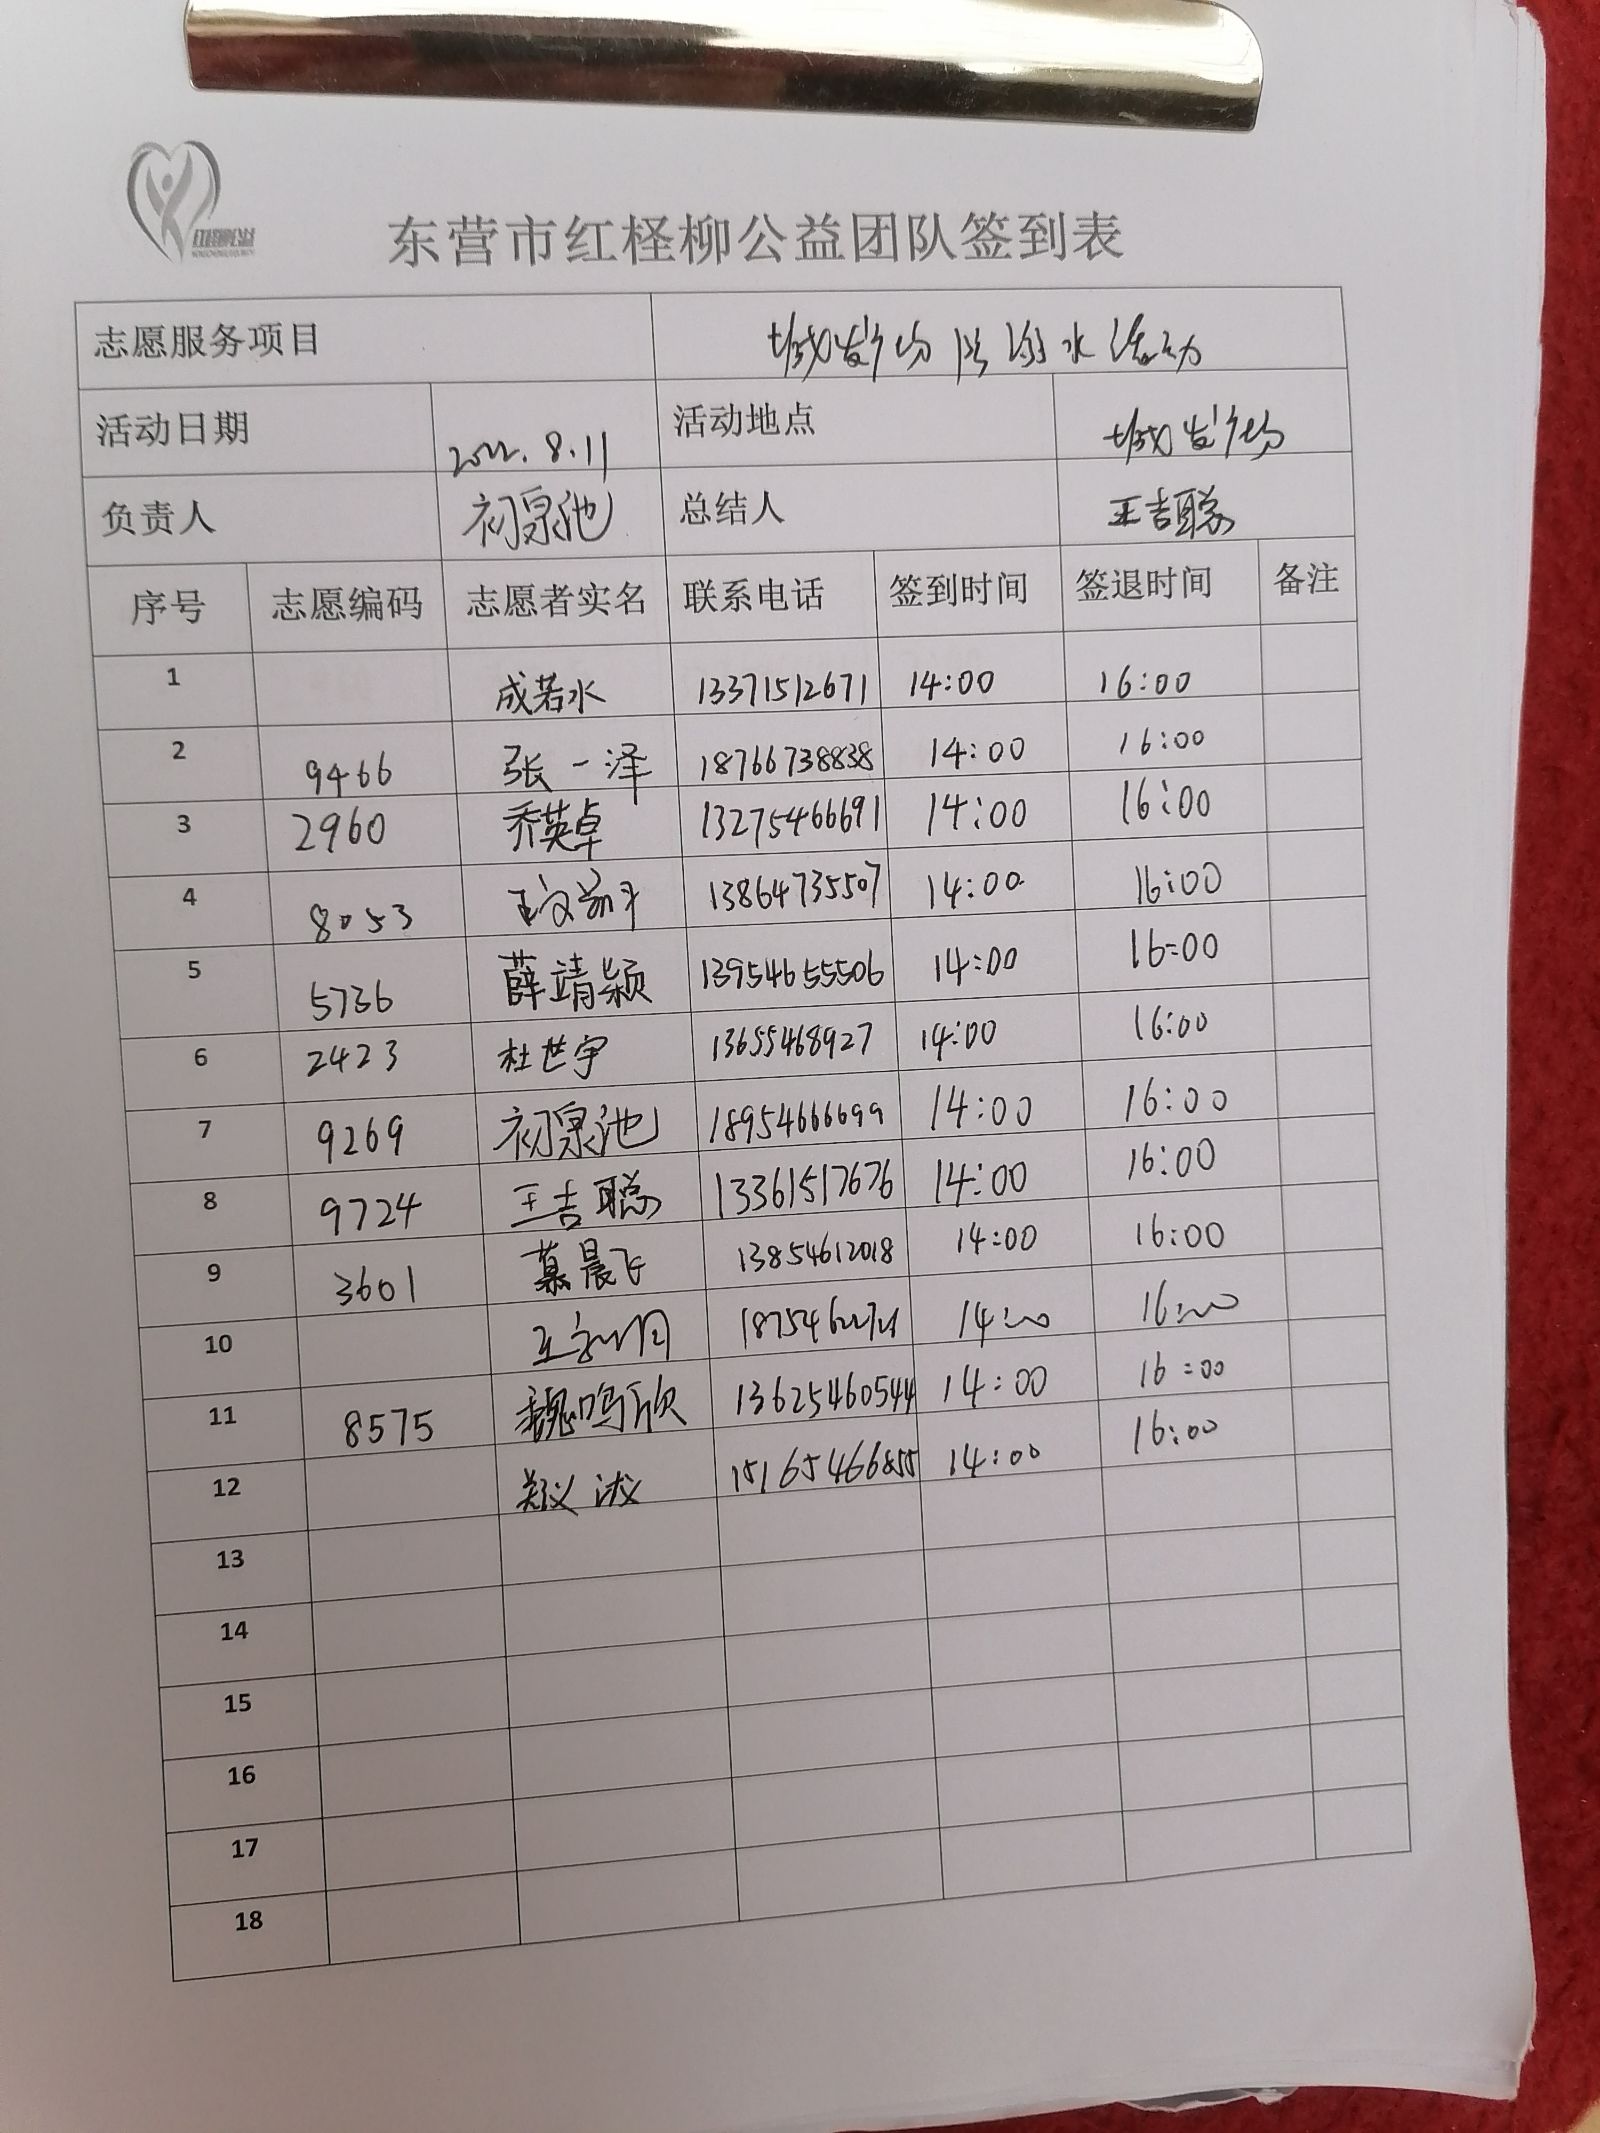 东营市红柽柳公益团队签到表
志愿服务项目 城发广场 水活动
活动日期 2022.8.11 活动地点 城发广场
负责人 初泉池 总结人 王吉聪
序号 志愿编码 志愿者实名 联系电话 签到时间 签退时间 备注
1 成若水 13371512671 14:00 16:00
2 9466 张一泽 18766738838 14:00 16:00
3 2960 乔英卓 13275466691 14:00 16:00
4 8053 13864735507 14:00 16:00
5 5736 薛靖颖 13954655506 14:00 16:00
6 2423 杜世宇 13655468927 14:00 16:00
7 9269 初泉池 18954666699 14:00 16:00
8 9724 王吉聪 13361517676 14:00 16:00
9 3601 慕晨飞 13854612018 14:00 16:00
10 14:00 16:00
11 8575 魏鸣欣 13625460544 14:00 16:00
12 15165466855 14:00 16:00
13
14
15
16
17
18